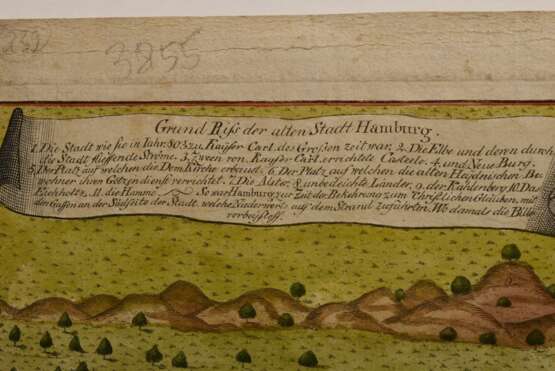 232
3855
Grund Riss der alten Stadt Hamburg.
1. Die Stadt wie sie in Jahr 803 zu Kaÿser Carl des Großen zeit war. 2. Die Elbe und deren durch
die Stadt fließende Ströme. 3. Zween von Kaÿser Carl errichtete Casteele. 4. und Neue Burg.
5. Der Platz auf welchen die Dom Kirche erbauet. 6. Der Platz auf welchen die alten Heydnischen Be
wohner ihren Götzendienst verrichtet. 7. Die Alster. 8. unbedeichte Länder. 9. der Kahlenberg 10. Das
Eichholtz. 11. die Hamme So war Hamburg zur Zeit der Bekehrung zum Christlichen Glauben, mit
den Gassen an der Südseite der Stadt, welche Niederwerts auf dem Strand zuführten. Wo damals die Bille
vorbeÿfloss.